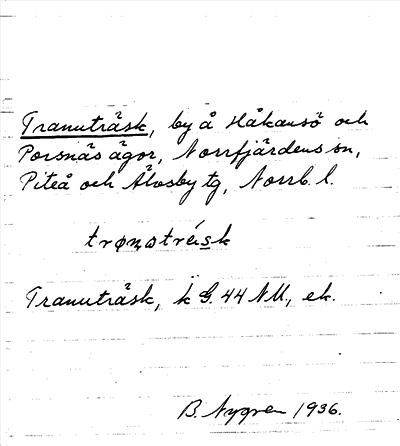 Tranuträsk, by å Håkansö och
Porsnäs ägor, Norrfjärdens sn,
Piteå och Älvsby tg, Norrb. l.
trạnɷträ́sk
Tranuträsk, k G. 44 NU, ek.
B. Nygren 1936.